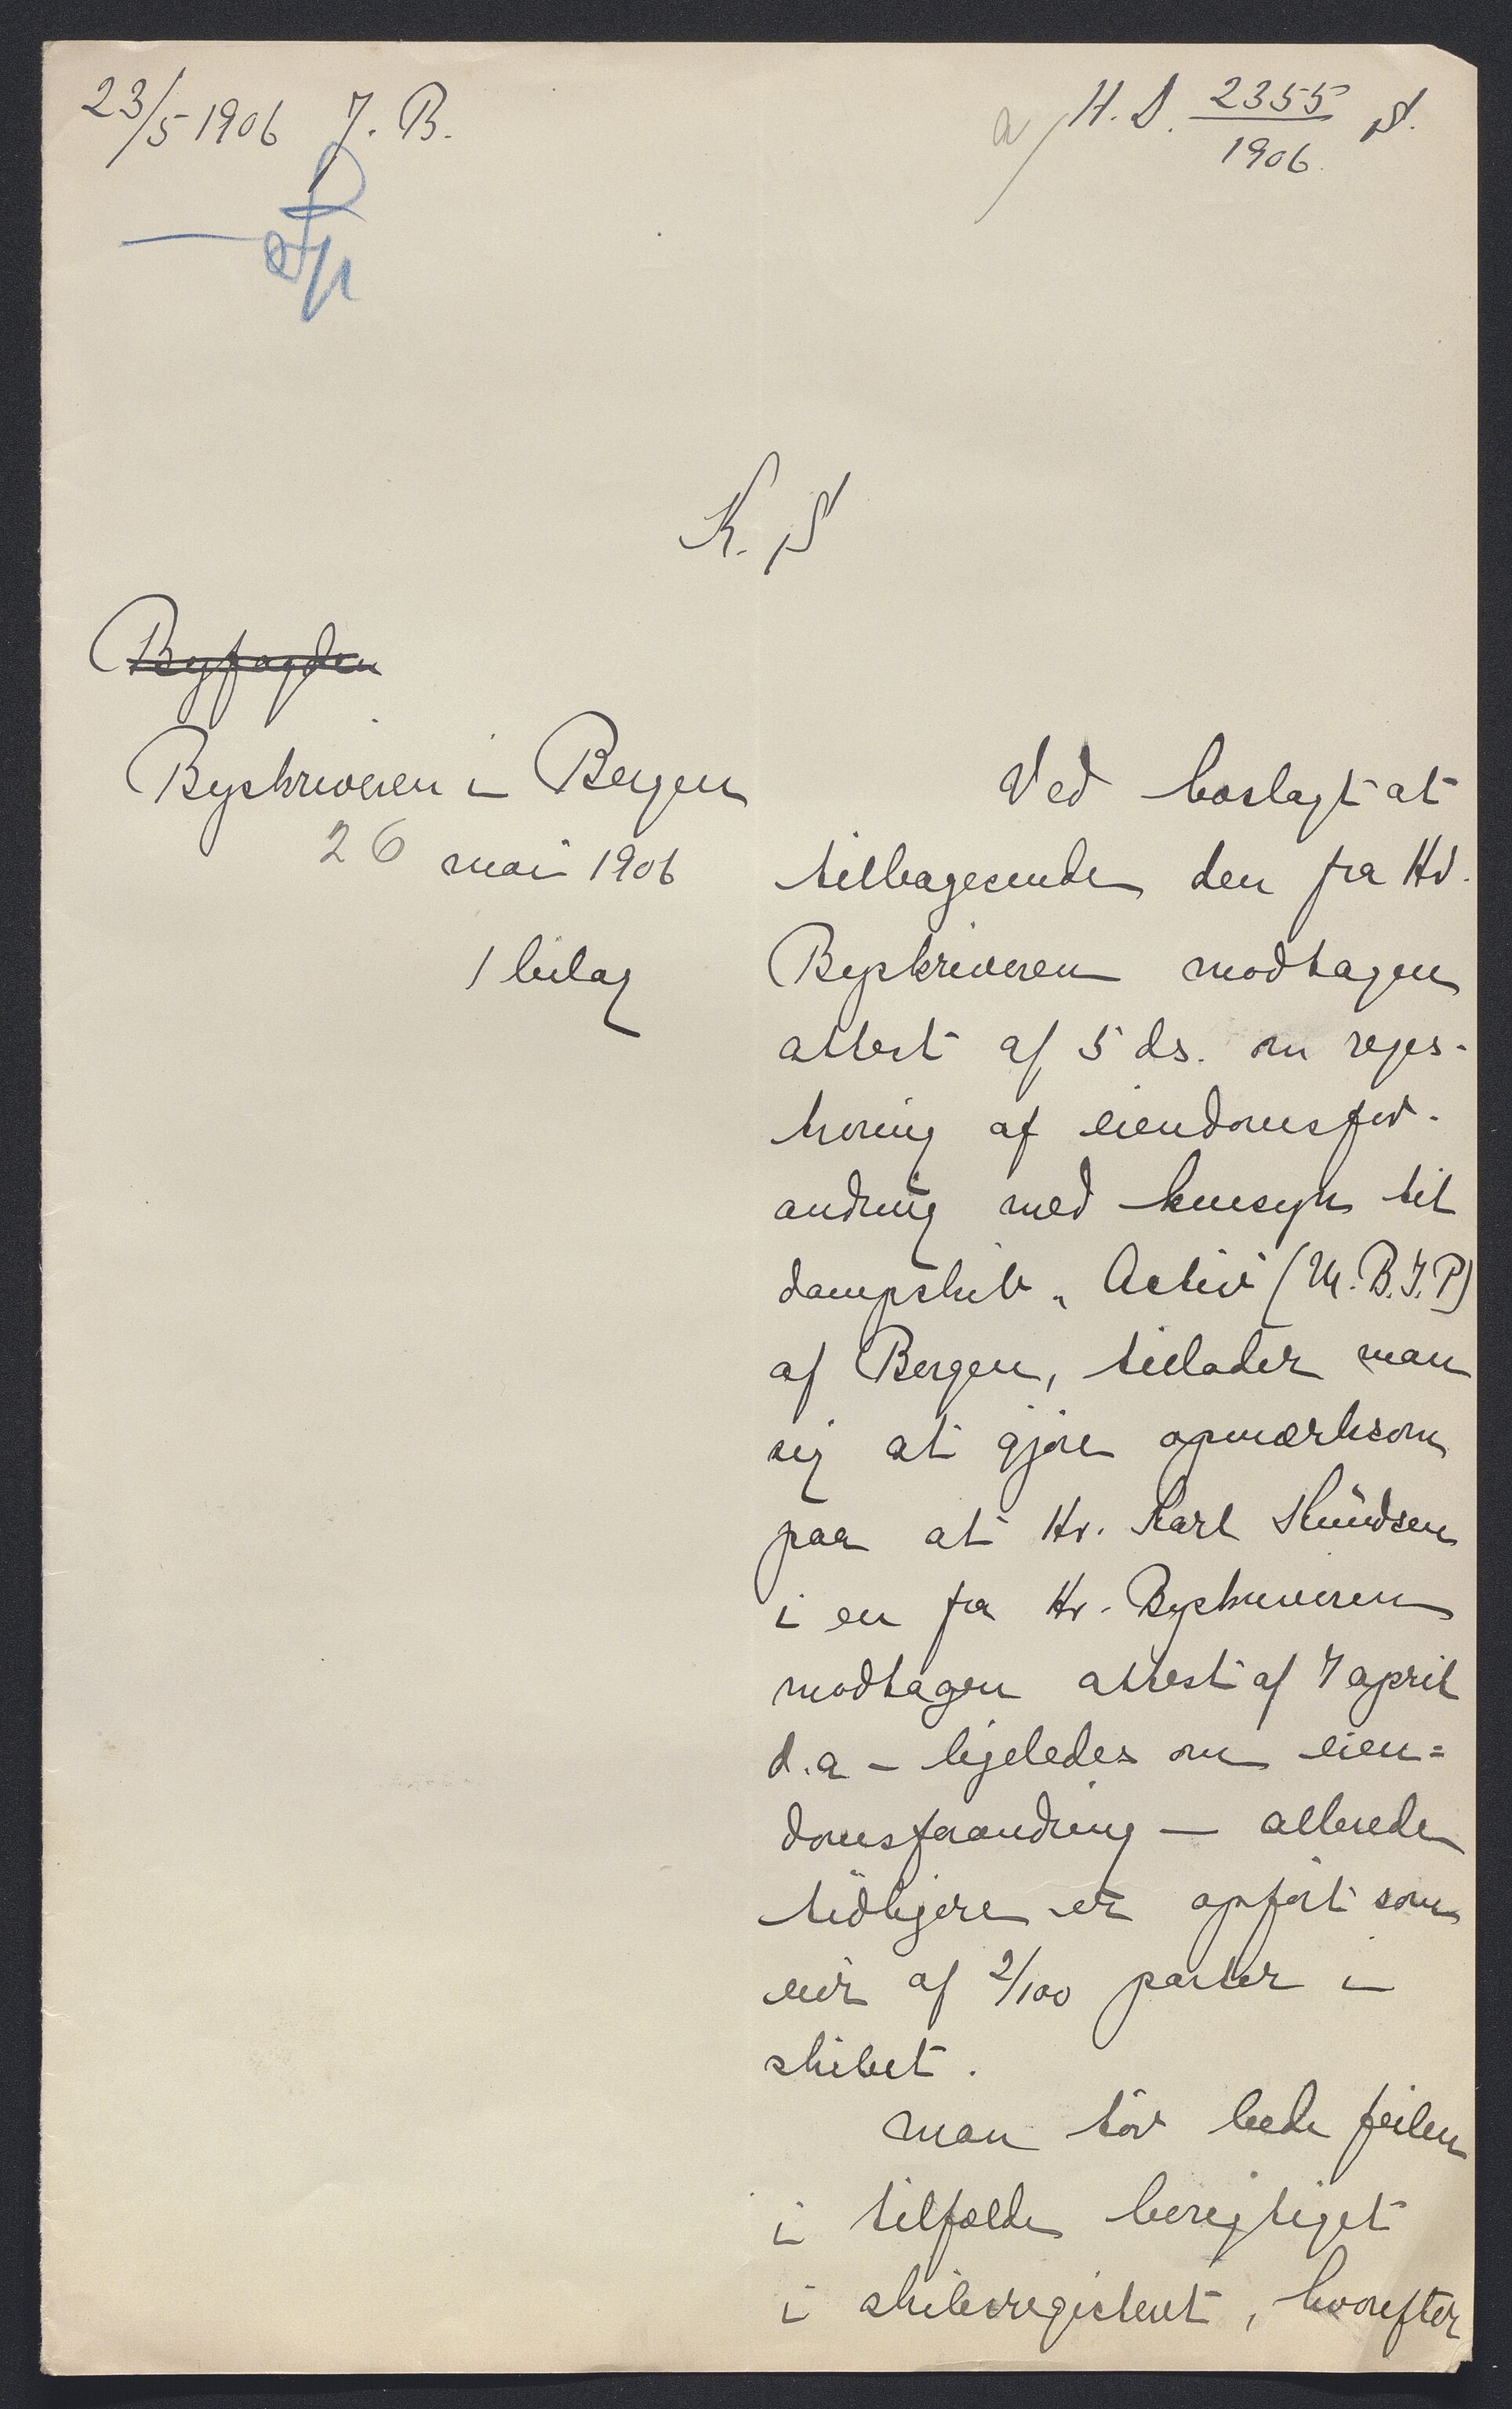 23/5 1906 J. B.
a/ H. D. 2355/1906 S.
K. S
Byfogden
Byskriveren i Bergen
26 mai 1906
1 bilag
Ved hoslagt at
tilbagesende den fra Hr.
Byskriveren modtagen
attest af 5 ds. om regis-
trering af eiendomsfor-
andring med hensyn til
dampskib "Activ" (M.B.J.P)
af Bergen, tillader man
sig at gjøre opmærksom
paa at Hr. Karl Knudsen
i en fra Hr. Byskriveren
modtagen attest af 7 april
d.a – ligeledes om eien=
domsforandring — allerede
tidligere er opført som
eier af 2/100 parter i
skibet.
man tør bede feilen
i tilfælde berigtiget
i skibsregisteret, hvorefter